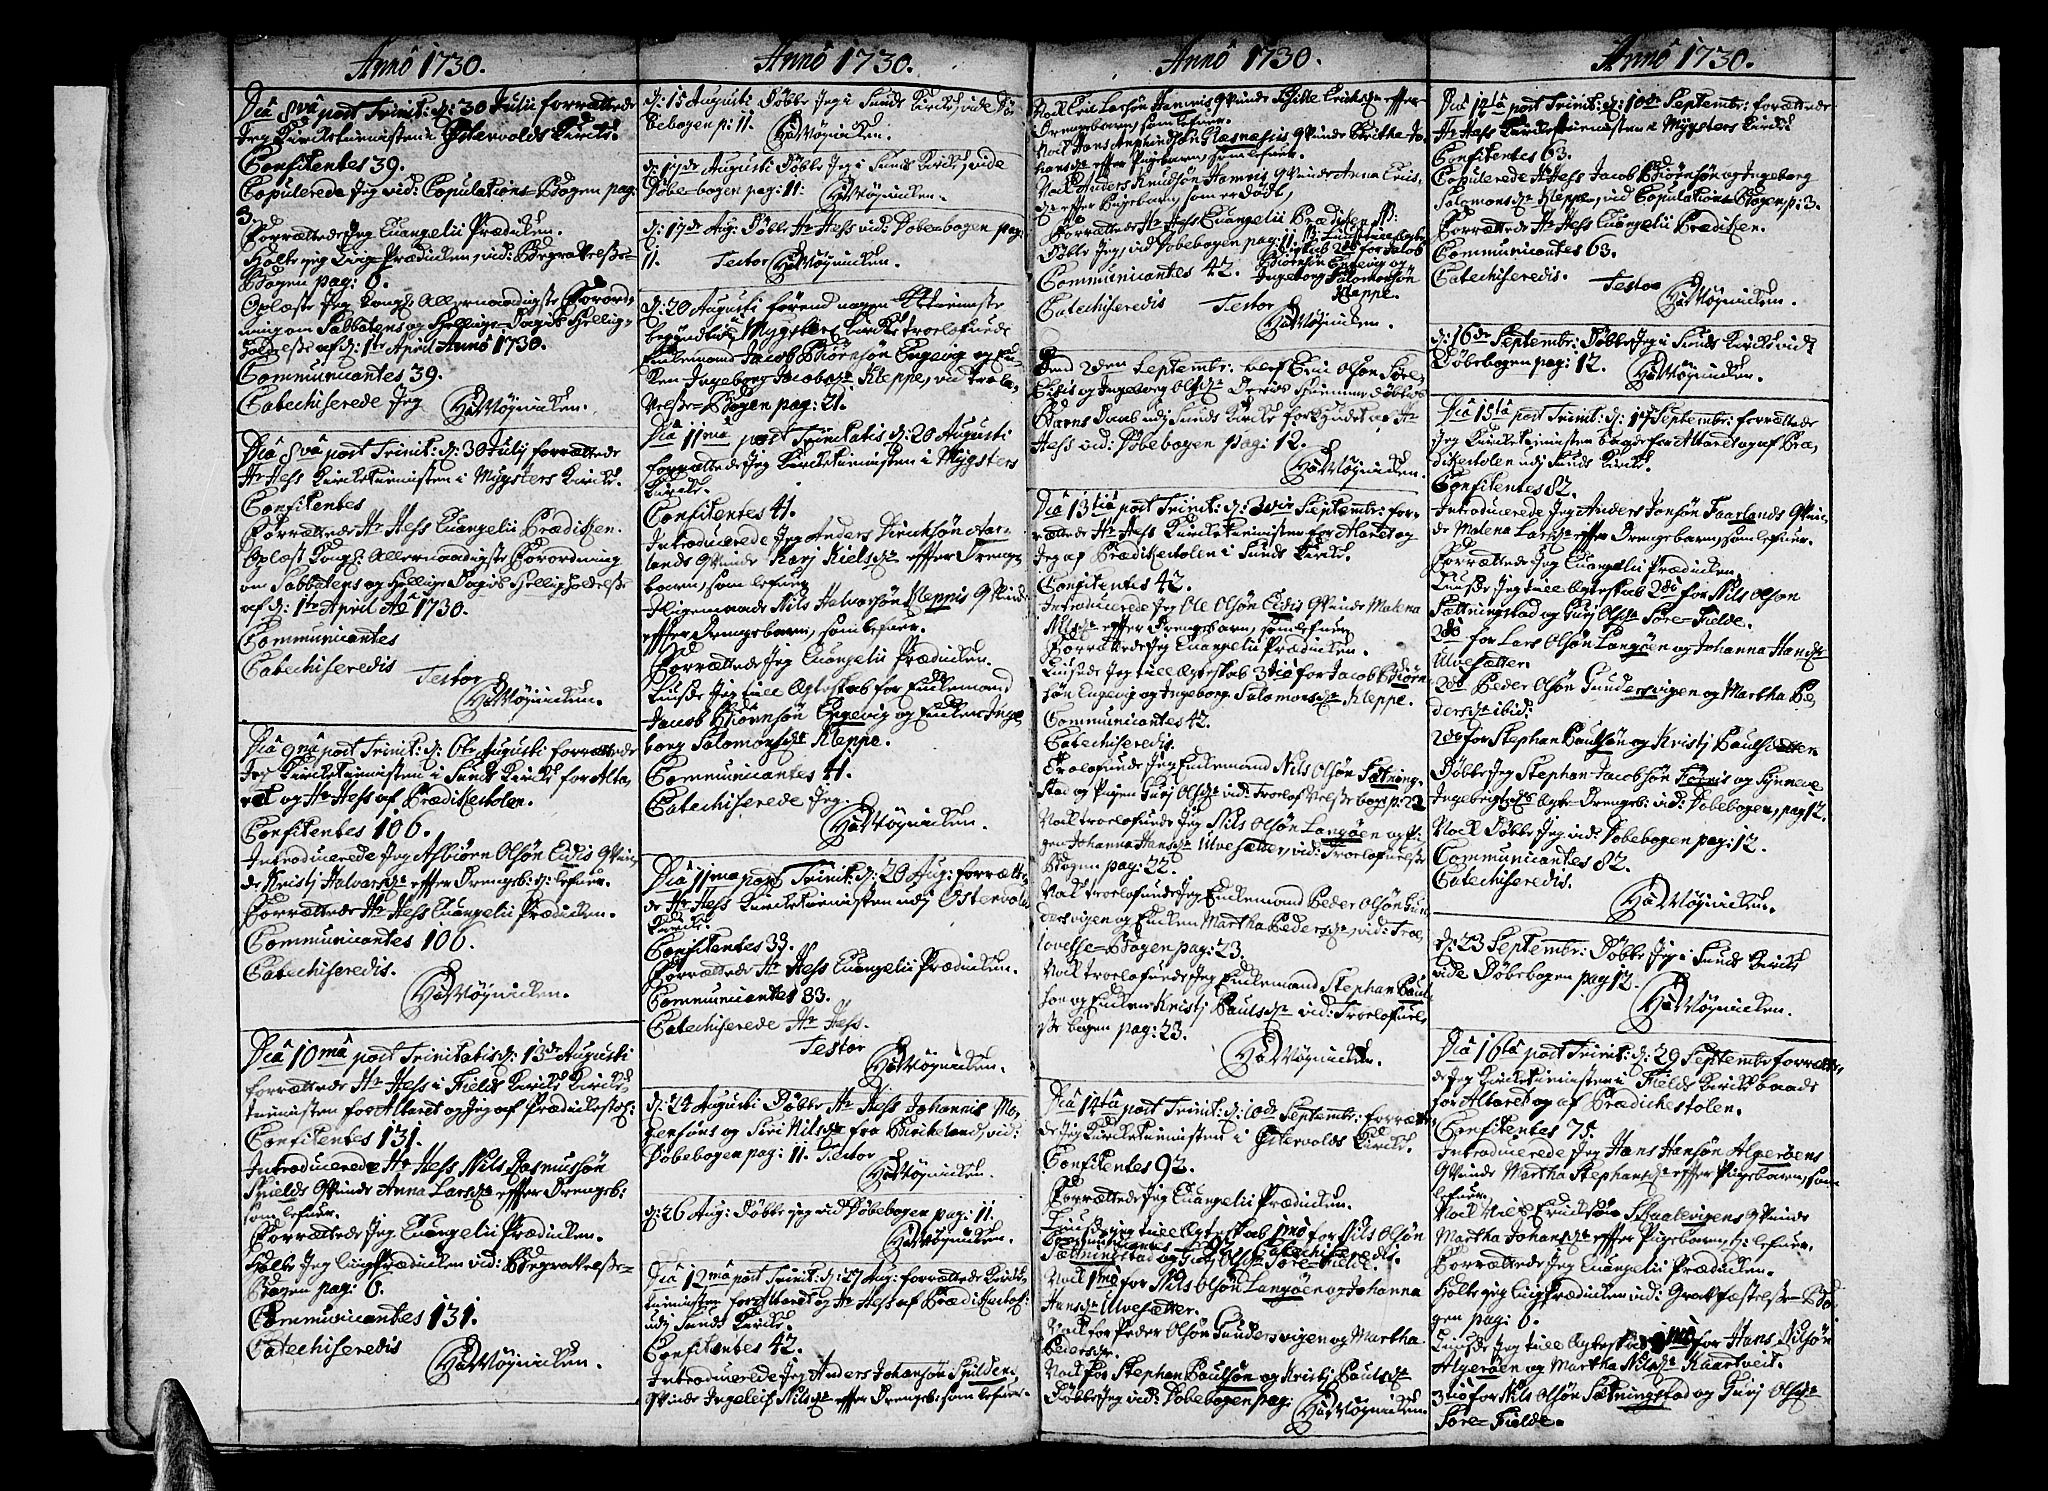 Anno 1730.
Dia 8va post Trinit: d: 30 Julii forrættede
Jeg Kircketienisten i Østervolds Kircke.
Confitentes 39.
Copulerede Jeg vid: Copulations-Bogen pag:
3.
Forrættede Jeg Euangelii Prædicken.
Holte jeg Liig-Prædicken, vid: Begravelsse-
Bogen pag: 6.
Oplæste Jeg Kongl: Allernaadigste Forord-
ning om Sabbatens og Hellige-Dagis Hellig-
holdelsse af d: 1te April Anno 1730.
Communicantes 39.
Catechiserede Jeg
HaWøgnicken.
Dia 8va post Trinit: d: 30 Julij forrættede
Hr Hess Kircketienisten i Mygsters Kircke.
Confitentes
Forrættede Hr Hess Euangelii Prædicken.
Oplæst Kongl: Allernaadigste Forordning
om Sabbatens og Hellige Dagis Helligholdelsse
af d: 1te April Ao 1730.
Communicantes
Catechiseredis
Testor
HaWøgnicken.
Dia 9na post Trinit: d: 6te Augusti forrættede
Jeg Kircketienisten i Sunds Kircke for Alta-
ret og Hr Hess af Prædickestolen.
Confitentes 106.
Introducerede Jeg Asbiørn Olsøn Eidis Qvin-
de Kristj Halvarsdr effter Drengeb: d: lefuer.
Forrættede Hr Hess Euangelii Prædicken.
Communicantes 106.
Catechiseredis.
HaWøgnicken.
Dia 10ma post Trinitatis d: 13de Augusti
forrættede Hr Hess i Fields Kircke Kircke-
tienisten for Altaret og Jeg af Prædickestol:
Confitentes 131.
Introducerede Hr Hess Nils Rasmussøn
Skields Qvinde Anna Larsdr effter Drengeb:
som lefuer.
Forrættede Jeg Euangelii Prædicken.
Holte Jeg Liig Prædicken vid: Begravelsse-
Bogen pag: 6.
Communicantes 131.
Catechiseredis
HaWøgnicken.
Anno 1730.
d: 15 Augusti Døbte Jeg i Sunds Kircke, vide Dø-
bebogen p: 11.
HaWøgnicken.
d: 17de Augusti Døbte Jeg i Sunds Kircke, vide
Døbe-bogen pag: 11:
HaWøgnicken.
d: 17de Aug: Døbte Hr Hess vid: Døbe-bogen pag:
11.
Testor
HaWøgnicken.
d: 20 Augusti førend nogen Kircketieniste
begyndtis i Mygsters Kircke troelofuede
Enckemand Jacob Biørnsøn Engevig og En-
ken Ingeborg Jacobsdr Kleppe, vid Troelo-
velsse-Bogen pag: 21.
Dia 11ma post Trinitatis d: 20 Augusti
forrættede Jeg Kircketienisten i Mygsters
Kircke.
Confitentes 41.
Introducerede Jeg Anders Dircksøn Aar-
lands Qvinde Karj Nielsdr effter Drenge
barn, som lefuer
Iligemaade Nils Halvorsøn Kleppis Qvinde
effter Drengebarn, som lefuer.
Forrættede Jeg Euangelii Prædicken.
Liuste Jeg till Ægteskab for Enckemand
Jacob Biørnsøn Engevig og Encken Inge-
borg Salomonsdr Kleppe.
Communicantes 41.
Catechiserede Jeg.
HaWøgnicken.
Dia 11ma post Trinit: d: 20 Aug: forrætte-
de Hr Hess Kircketienisten udj Østervolds
Kircke.
Confitentes 33.
Forrættede Hr Hess Euangelii Prædicken.
Communicantes 33.
Catechiserede Hr Hess.
Testor
HaWøgnicken.
d: 24 Augusti Døbte Hr Hess Johannis Mo-
gensøns og Siri Nilsdr fra Birckeland, vid:
Døbebogen pag: 11. Testor
HaWøgnicken.
d: 26 Aug: Døbte jeg vid Døbebogen pag: 11.
HaWøgnicken.
Dia 12ma post Trinit: d: 27 Aug: forrættede Kircke-
tienisten for Altaret og Hr Hess af Prædickestol:
udj Sunds Kircke.
Confitentes 42.
Introducerede Jeg Anders Johansøn Spildens
Qvinde Ingeleif Nilsdr effter Drengeb: som lefuer.
Anno 1730.
Nock Eric Larsøn Hamris Qvinde Gitte Ericksdr effter
Drengebarn, som lefuer.
Nock Hans Qvinde Berithe Jo-
hansdr effter Pigebarn, som lefuer.
Nock Anders Knudsøn Hamris Qvinde Anna
effter Pigebarn, som er dødt,
Forrættede Hr Hess Euangelii Prædicken.
Døbte Jeg, vid Døbebogen pag: 11
Ægte-
skab 2do for Jacob
Biørnsøn Engevig og
Ingeborg Salomonsdr
Kleppe.
Communicantes 42.
Catechiseredis
Testor
HaWøgnicken.
Dend 2den Septembr: blef Eric Olsøn
Eidis og Ingeborg Olsdr Deris
Barns Daab udj Sunds Kircke forkyndet af Hr
Hess vid: Døbebogen pag: 12.
HaWøgnicken.
Dia 13tia post Trinit: d: Septembr: for-
rættede Hr Hess Kircketienisten for Altaret og
Jeg af Prædickestolen i Sunds Kircke.
Confitentes 42.
Introducerede Jeg Ole Olsøn Eidis Qvinde Malena
Nilsdr effter Drengebarn, som lefuer
Forrættede Jeg Euangelii Prædicken.
Liusede Jeg till Ægteskab 3tio for Jacob Biørn-
søn Engevig og Ingeborg Salomonsdr Kleppe.
Communicantes 42.
Catechiseredis.
Troelofuede Jeg Enckemand Nils Olsøn Sætning-
stad og Pigen Gurj Olsdr vid: Troelofvelsse bog: p: 22
Nock troelofuede Jeg Nils Olsøn Langøen og Pi-
gen Johanna Hansdr Ulvesætter, vid: Troelofuelsse
Bogen pag: 22.
Nock troelofuede Jeg Enckemand Peder Olsøn Gun-
dersvigen og Encken Martha Pedersdr, vid: Troe-
lovelsse-Bogen pag: 23.
Nock troelofuede Jeg Enckemand Stephan Paul-
søn og Encken Kristj Paulsdr vid: Troelofuel-
sse bogen pag: 23.
HaWøgnicken.
Dia 14ta post Trinit: d: 10de Septembr: forrætte-
de Jeg Kircketienisten i Østervolds Kircke.
Confitentes 92.
Forrættede Jeg Euangelii Prædicken.
Liuste jeg till Ægteskab 1mo for Nils Olsøn
Communicantes 92. Catechiseredis.
Sætningstad og Gurj Olsdr Søre-Fielde.
Nock 1mo for Nils Olsøn Langøen og Johanna
Hansdr Ulvesætter.
Nock for Peder Olsøn Gundersvigen og Martha
Pedersdr.
Nock for Stephan Paulsøn og Kristj Paulsdr
Døbte Jeg vid: Døbebogen pag:
HaWøgnicken.
Anno 1730.
Dia 14ta post Trinit: d: 10de Septembr: forættede
Hr Hess Kircketienisten i Mygsters Kircke
Confitentes 63.
Copulerede Hr Hess Jacob Biørnsøn og Ingeborg
Salomonsdr Kleppe, vid Copulations-Bogen p: 3.
Forrættede Hr Hess Euangelii Prædicken.
Communicantes 63.
Catechiseredis.
Testor
HaWøgnicken.
d: 16de Septembr: Døbte Jeg i Sunds Kircke vid:
Døbebogen pag: 12.
HaWøgnicken.
Dia 15ta post Trinit: d: 17 Septembr: forrættede
Jeg Kircketienisten baade for Altaret og af Præ-
dickestolen udj Sunds Kircke.
Confitentes 82.
Introducerede Jeg Anders Jonsøn Faarlands Qvin-
de Malena Larsdr effter Drengebarn, som lefuer.
Forrættede Jeg Euangelii Prædicken.
Liuste Jeg till Ægteskab 2do for Nils Olsøn
Sættningstad og Gurj Olsdr Søre-Fielde.
2do for Lars Olsøn Langøen og Johanna Hansdr
Ulvesætter.
2do Peder Olsøn Gundersvigen og Martha Pe-
dersdr ibid:
2do for Stephan Paulsøn og Kristj Paulsdatter
Døbte Jeg Stephan Jacobsøn og Synneve
Ingebrigtsdr Ægte-Drengeb: vid: Døbebogen, pag 12.
Nock Døbte Jeg vid: Døbebogen pag: 12.
Communicantes 82.
Catechiseredis.
HaWøgnicken.
d: 23 Septembr: Døbte Jeg i Sunds Kircke
vide Døbebogen pag 12.
HaWøgnicken.
Dia 16ta post Trinit: d: 29 Septembr forrætte-
de Jeg Kircketienisten i Fields Kircke baade
for Altaret og af Prædickestolen.
Confitentes 75.
Introducerede Jeg Hans Hansøn Algerøens
Qvinde Martha Stephansdr effter Pigebarn, som
lefuer
Nock Nils Ericksøn Skaalevigens Qvinde
Martha Johansdr effter Pigebarn, d: lefuer.
Forrættede Jeg Euangelii Prædicken.
Holte jeg Liig Prædicken vid: Gravfæstelsse-Bo-
gen pag: 6.
Liuste Jeg till Ægteskab 1mo for Hans Nilsøn
Algerøen og Martha Nilsdr Kaartveit.
3tio for Nils Olsøn Sætningstad og Gurj Olsdr
Søre-Fielde.